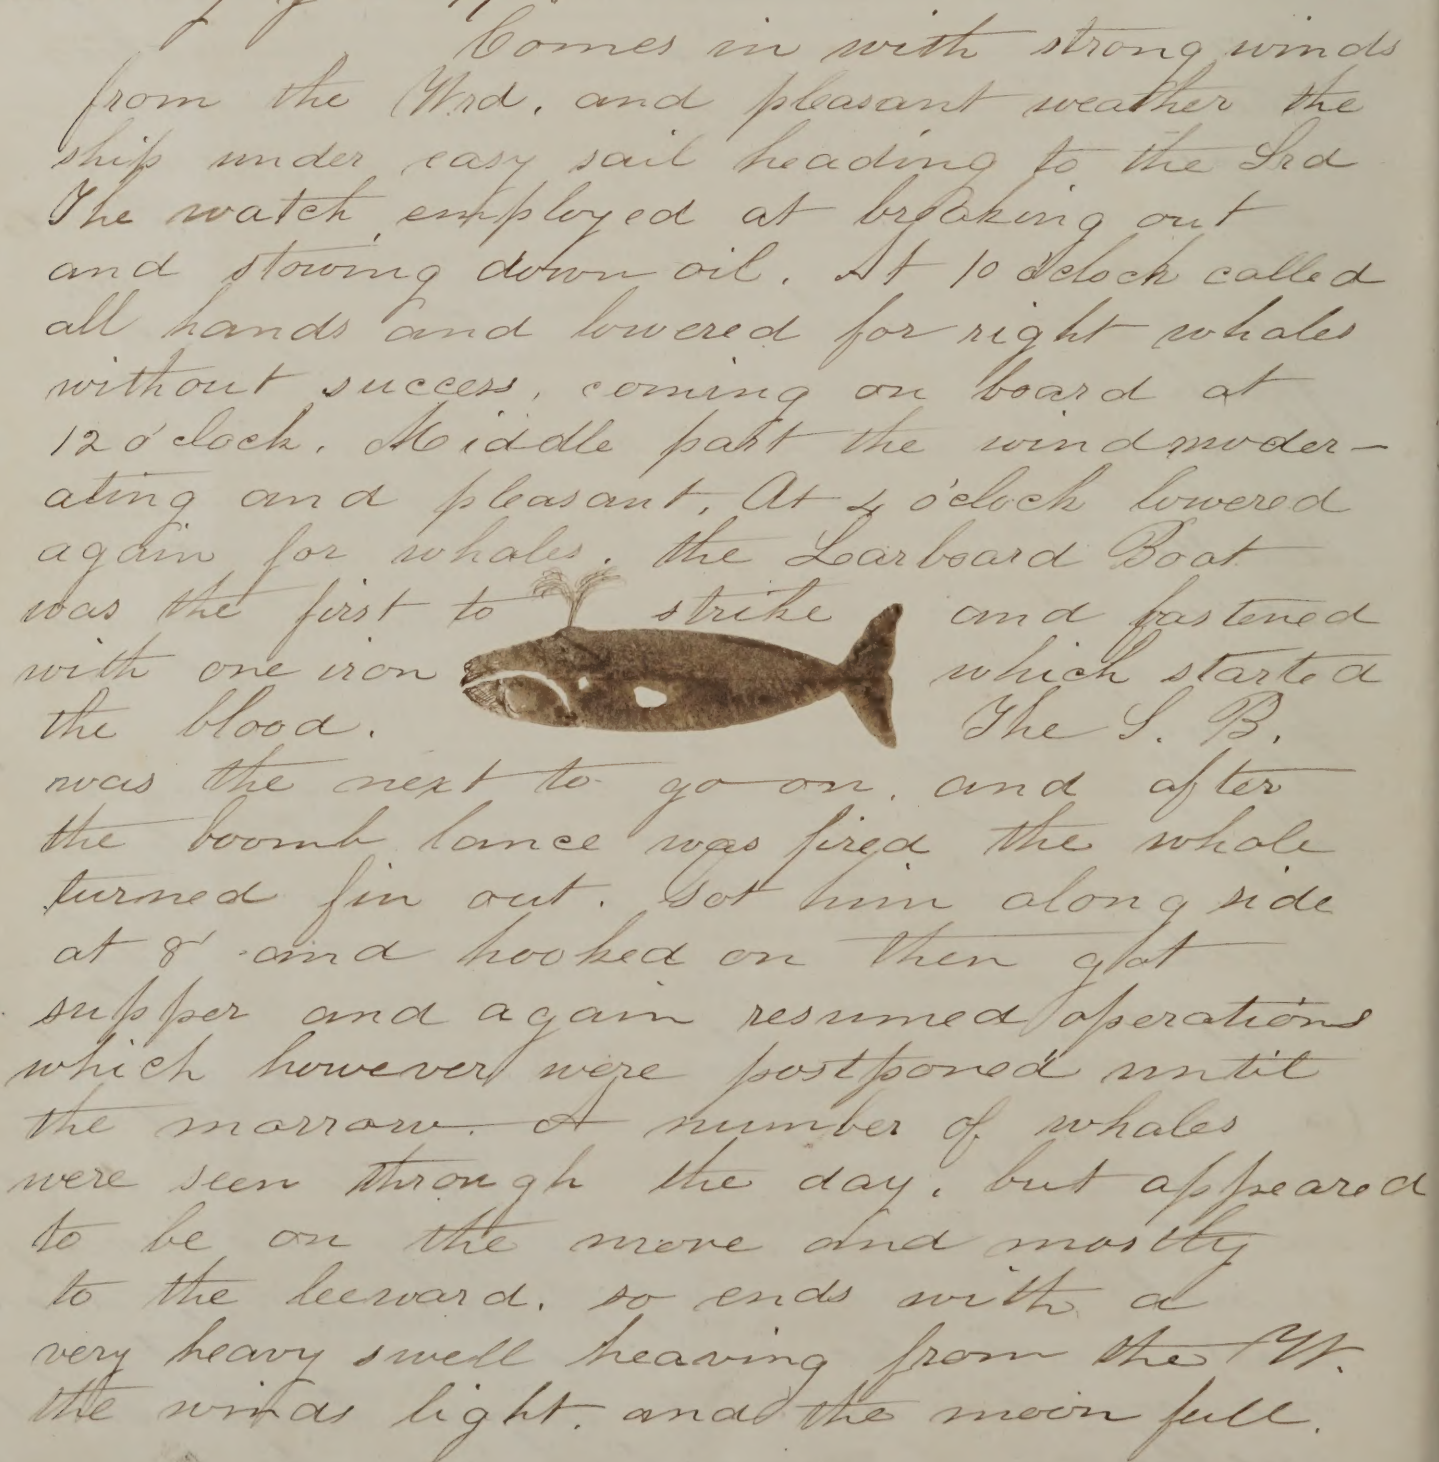 Comes in with strong winds
from the Wrd, and pleasant weather the
ship under easy sail heading to the Srd
The watch employed at breaking out
and stowing down oil. At 10 o'clock called
all hands and lowered for right whales
without success, coming on board at
12 o'clock. Middle part the wind moder-
ating and pleasant. At 4 o'clock lowered
again for whales. the Larboard Boat
was the first to strike and fastened
with one iron which started
the blood. The S. B.
was the next to go on, and after
the boomb lance was fired the whale
turned fin out. Got him along side
at 8 and hooked on then got
supper and again resumed operations
which however were postponed until
the morrow. A number of whales
were seen through the day, but appeared
to be on the move and mostly
to the leeward. so ends with a
very heavy swell heaving from the W.
the winds light. and the moon full.